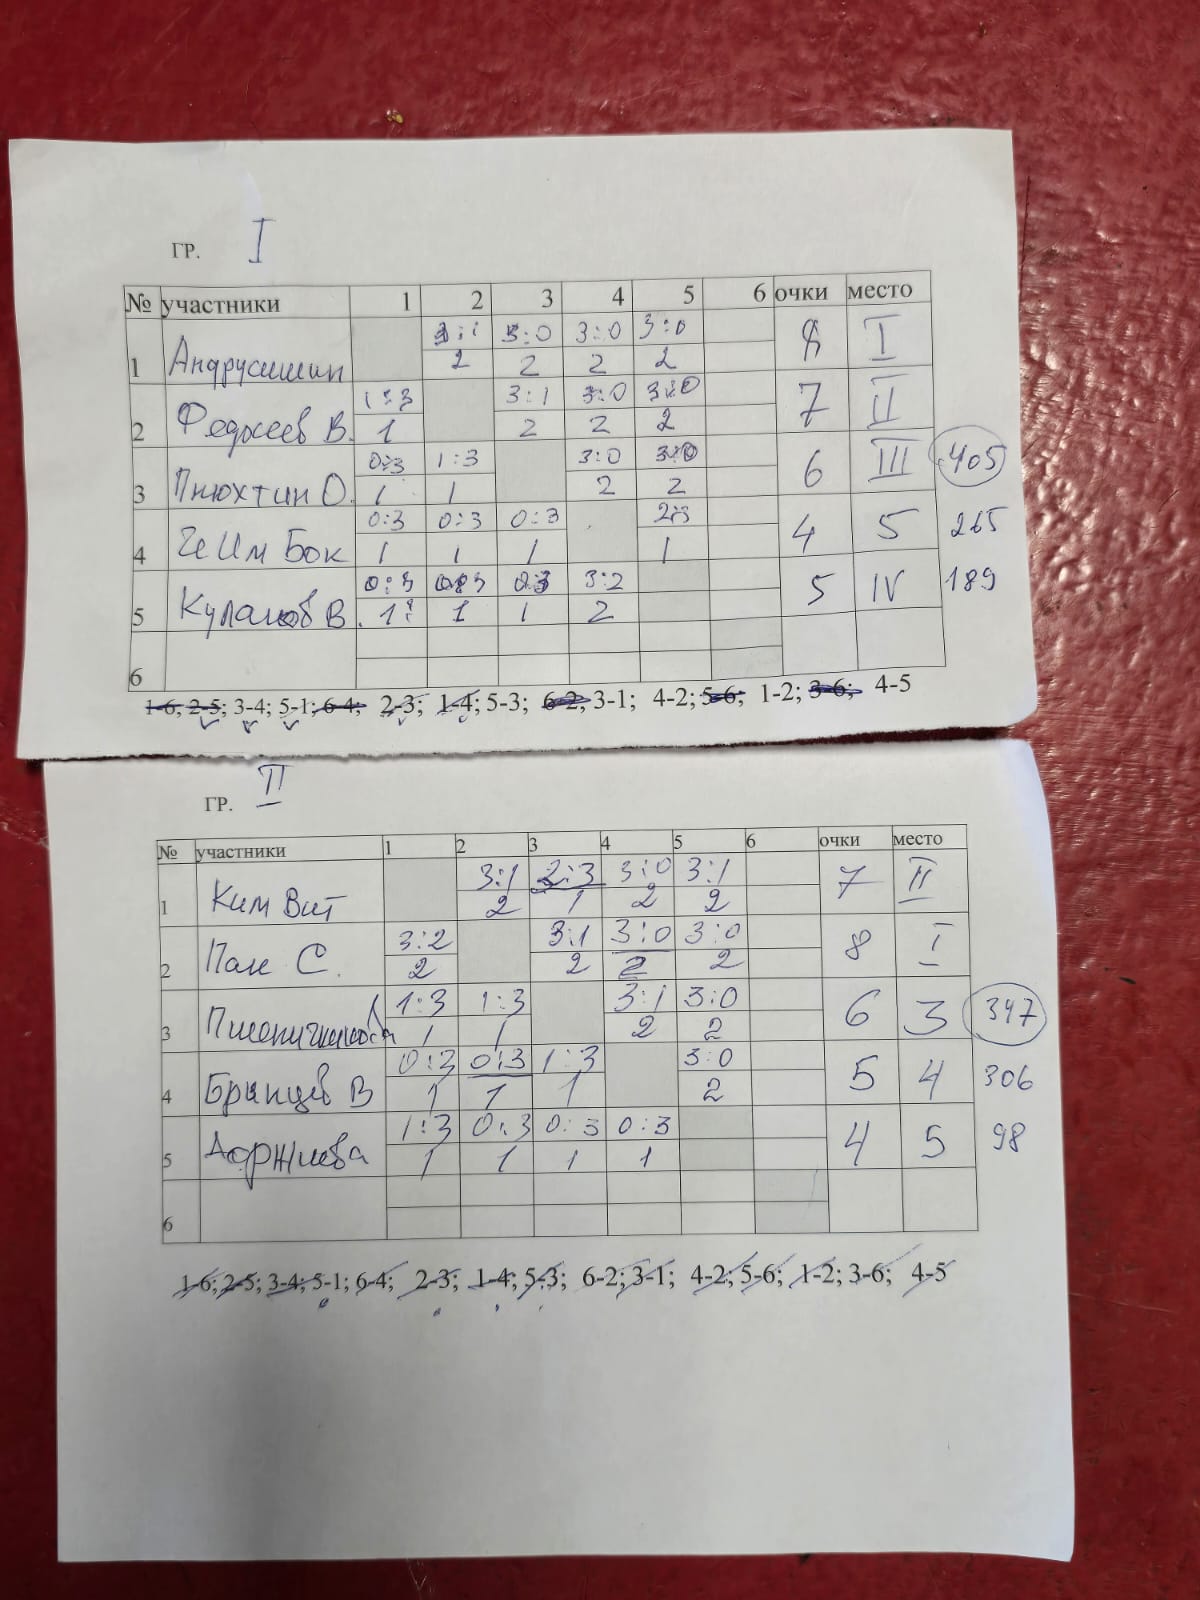 ГР. I
№ участники 1 2 3 4 5 6 очки место
3:1 3:0 3:0 3:0
1 Андрусишин 2 2 2 2 8 I
1:3 3:1 3:0 3:0
2 Федкеев В. 1 2 2 2 7 II
0:3 1:3 3:0 3:0
3 Пнюхтин О. 1 1 2 2 6 III 405
0:3 0:3 0:3 2:3
4 Че Им Бок 1 1 1 1 4 5 265
0:3 0:3 0:3 3:2
5 Куланов В. 1 1 1 2 5 IV 189
6
1-6; 2-5; 3-4; 5-1; 6-4; 2-3; 1-4; 5-3; 6-2; 3-1; 4-2; 5-6; 1-2; 3-6; 4-5
ГР. II
№ участники 1 2 3 4 5 6 очки место
3:1 2:3 3:0 3:1
1 Ким Вит 2 1 2 2 7 II
3:2 3:1 3:0 3:0
2 Пак С. 2 2 2 2 8 I
1:3 1:3 3:1 3:0
3 Пшеничникова 1 1 2 2 6 3 347
0:3 0:3 1:3 3:0
4 Брянцев В 1 1 1 2 5 4 306
1:3 0:3 0:3 0:3
5 Доржиева 1 1 1 1 4 5 98
6
1-6; 2-5; 3-4; 5-1; 6-4; 2-3; 1-4; 5-3; 6-2; 3-1; 4-2; 5-6; 1-2; 3-6; 4-5